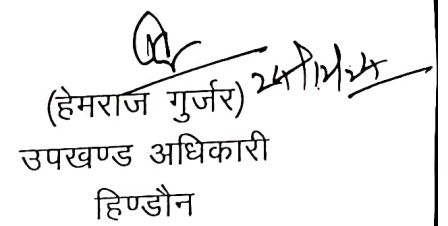 (हेमराज गुर्जर) 24/12/24
उपखण्ड अधिकारी
हिण्डौन